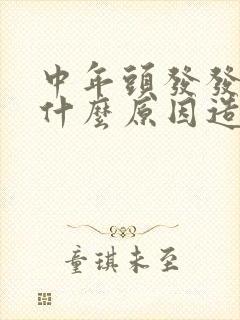 中年頭發發
什麼原因造
童琪未至